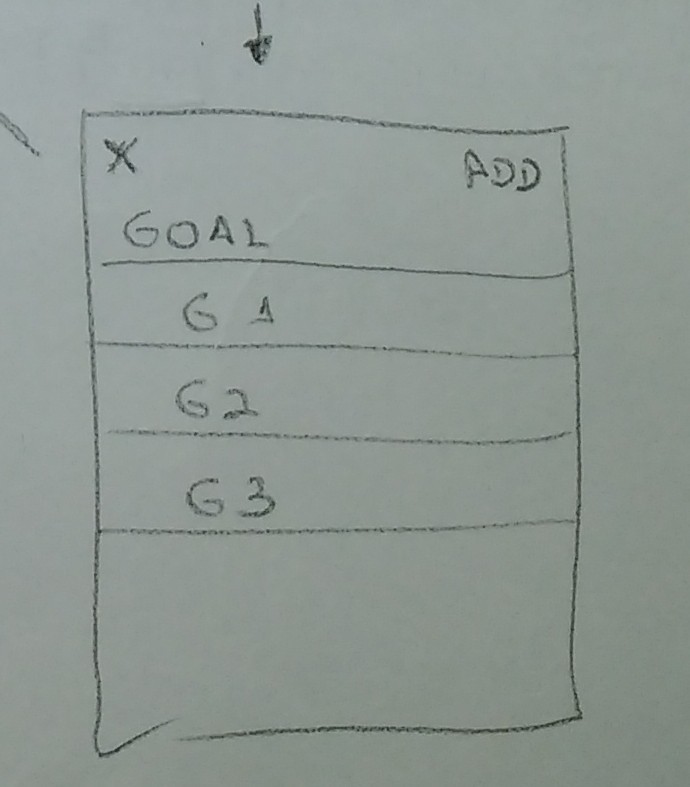 X ADD
GOAL
G 1
G2
G3